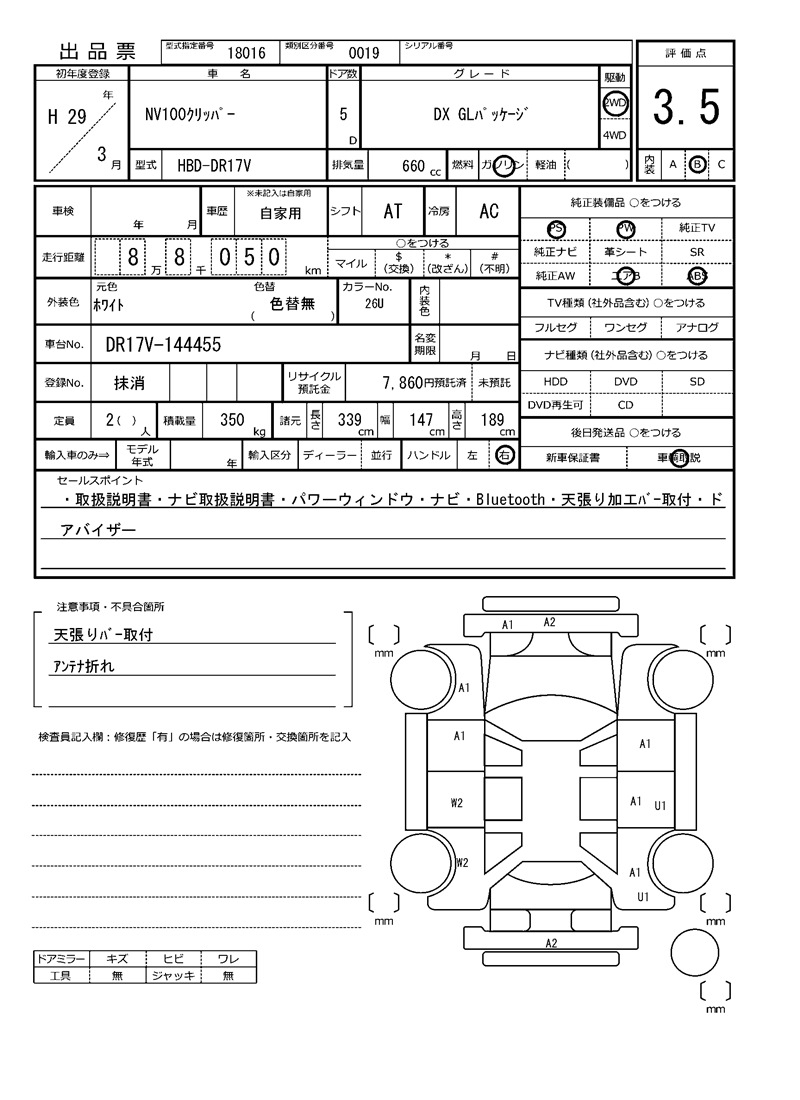 出品票 型式指定番号 18016 類別区分番号 0019 シリアル番号
評価点
3.5
内装 A B C
初年度登録 車名 ドア数 グレード 駆動
H 29 年 3 月
NV100クリッパー 5 D DX GLパッケージ 2WD
4WD
型式 HBD-DR17V 排気量 660 cc 燃料 ガソリン 軽油 ( )
車検 年 月 車歴 ※未記入は自家用 自家用 シフト AT 冷房 AC
走行距離 8 万 8 千 0 5 0 km ○をつける
マイル $(交換) *(改ざん) #(不明)
外装色 元色 ホワイト 色替 ( 色替無 ) カラーNo. 26U 内装色
車台No. DR17V-144455 名変期限 月 日
登録No. 抹消 リサイクル預託金 7,860円預託済 未預託
定員 2( ) 人 積載量 350 kg 諸元 長さ 339 cm 幅 147 cm 高さ 189 cm
輸入車のみ⇒ モデル年式 年 輸入区分 ディーラー 並行 ハンドル 左 右
純正装備品 ○をつける
PS PW 純正TV
純正ナビ 革シート SR
純正AW エアB ABS
TV種類(社外品含む) ○をつける
フルセグ ワンセグ アナログ
ナビ種類(社外品含む) ○をつける
HDD DVD SD
DVD再生可 CD
後日発送品 ○をつける
新車保証書 車輌取説
セールスポイント
・取扱説明書・ナビ取扱説明書・パワーウィンドウ・ナビ・Bluetooth・天張り加工バー取付・ド
アバイザー
注意事項・不具合箇所
天張りバー取付
アンテナ折れ
検査員記入欄:修復歴「有」の場合は修復箇所・交換箇所を記入
ドアミラー キズ ヒビ ワレ
工具 無 ジャッキ 無
A1 A2
mm mm
A1
A1 A1
W2 A1 U1
W2 A1
U1
mm mm
A2
mm